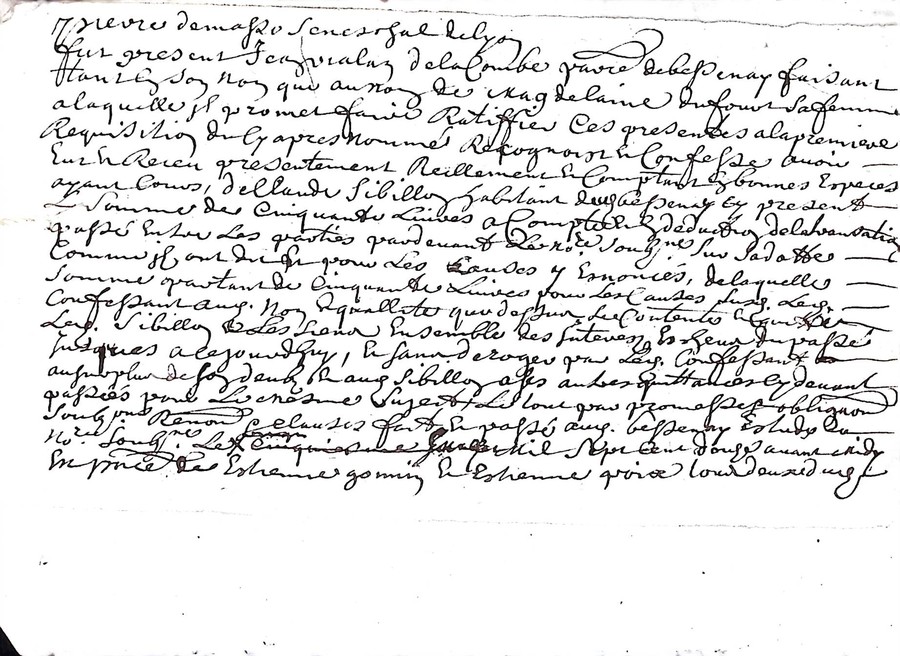 pierre demasso seneschal de lyon
fut present Jean vialay delaCombe parre debessenay faisant
tant En son Non que au nom de Magdelaine dufour sa femme
a laquelle il promet faire Ratiffier Ces presentes alapremiere
Requisition du Cy apres Nommé Recognoist Et Confesse avoir
Eut Et Receu presentement Reillement Et Comptant En bonnes Especes
ayant Cours, de Claude Sibillon habitant dud bessenay Cy present
La Somme de Cinquante Livres a Compte Et En deduction de la
passé Entre Les parties pardevant Le nore Soubsne Sur Sa datte
Comme ils ont dit Et pour Les Causes y Enoncés, de laquelle
Somme partant de Cinquante Livres pour Les Causes Susd Led.
Confessant aud. Non Et quallité que dessus Se Contente Et quitte
Led. Sibillon Et Les Siens Ensemble des Interests Escheus du passé
Jusques a Cejourdhuy, Et sans deroger par Led. Confessant
au surplus de son deub Et aud Sibillon a ses autres quittances Cy devant
passées pour Le mesme Sujet Et Le tout par promesses obligaon
Soubzons Renon Et Clauses fait Et passé aud. bessenay Estude du
Nore Soubsne. Le Cinquiesme Mil Sept Cent douze avant midy
En pnce de Estienne gonin Et Estienne poix tous deux dud